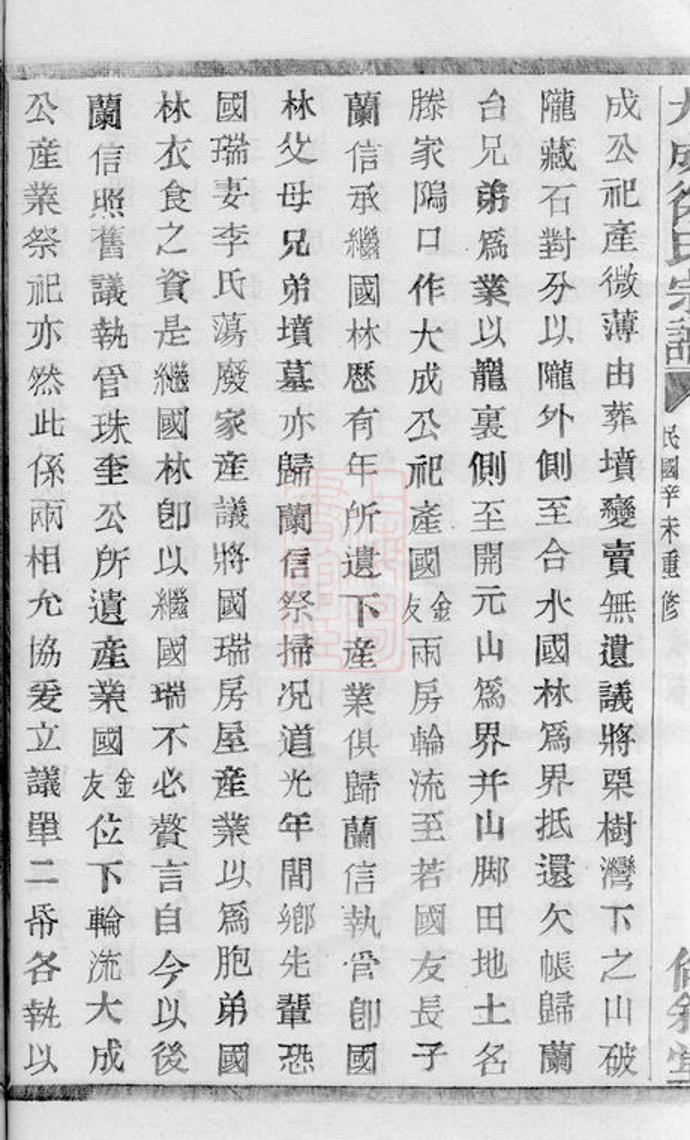 大成徐氏宗譜 民國辛未重修
成公祀產微薄由葬墳變賣無遺議將栗樹灣下之山破
隴藏石對分以隴外側至合水國林為界抵還欠帳歸蘭
台兄弟為業以龍裏側至開元山為界并山脚田地土名
滕家隖口作大成公祀產國金友兩房輪流至若國友長子
蘭信承繼國林歷有年所遺下產業俱歸蘭信執管卽國
林父母兄弟墳墓亦歸蘭信祭掃况道光年間鄉先輩恐
國瑞妻李氏蕩廢家産議將國瑞房屋産業以爲胞弟國
林衣食之資是繼國林卽以繼國瑞不必贅言自今以後
蘭信照舊議執管珠奎公所遺産業國金友位下輪流大成
公産業祭祀亦然此係兩相允協爰立議單二帋各執以